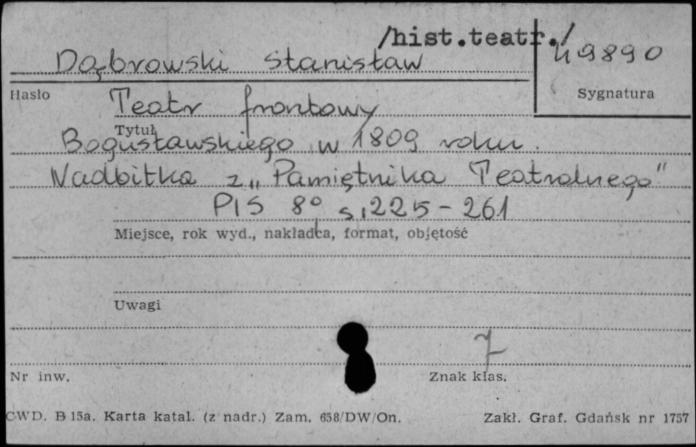 /hist.teatr./
Dąbrowski Stanisław 49890
Hasło Sygnatura
Teatr frontowy
Tytuł
Bogusławskiego w 1809 roku.
Nadbitka z „Pamiętnika Teatralnego"
PIS 8° s. 225-261
Miejsce, rok wyd., nakładca, format, objętość
Uwagi
7
Nr inw. Znak klas.
CWD. B 15a. Karta katal. (z nadr.) Zam. 658/DW/On. Zakł. Graf. Gdańsk nr 1757